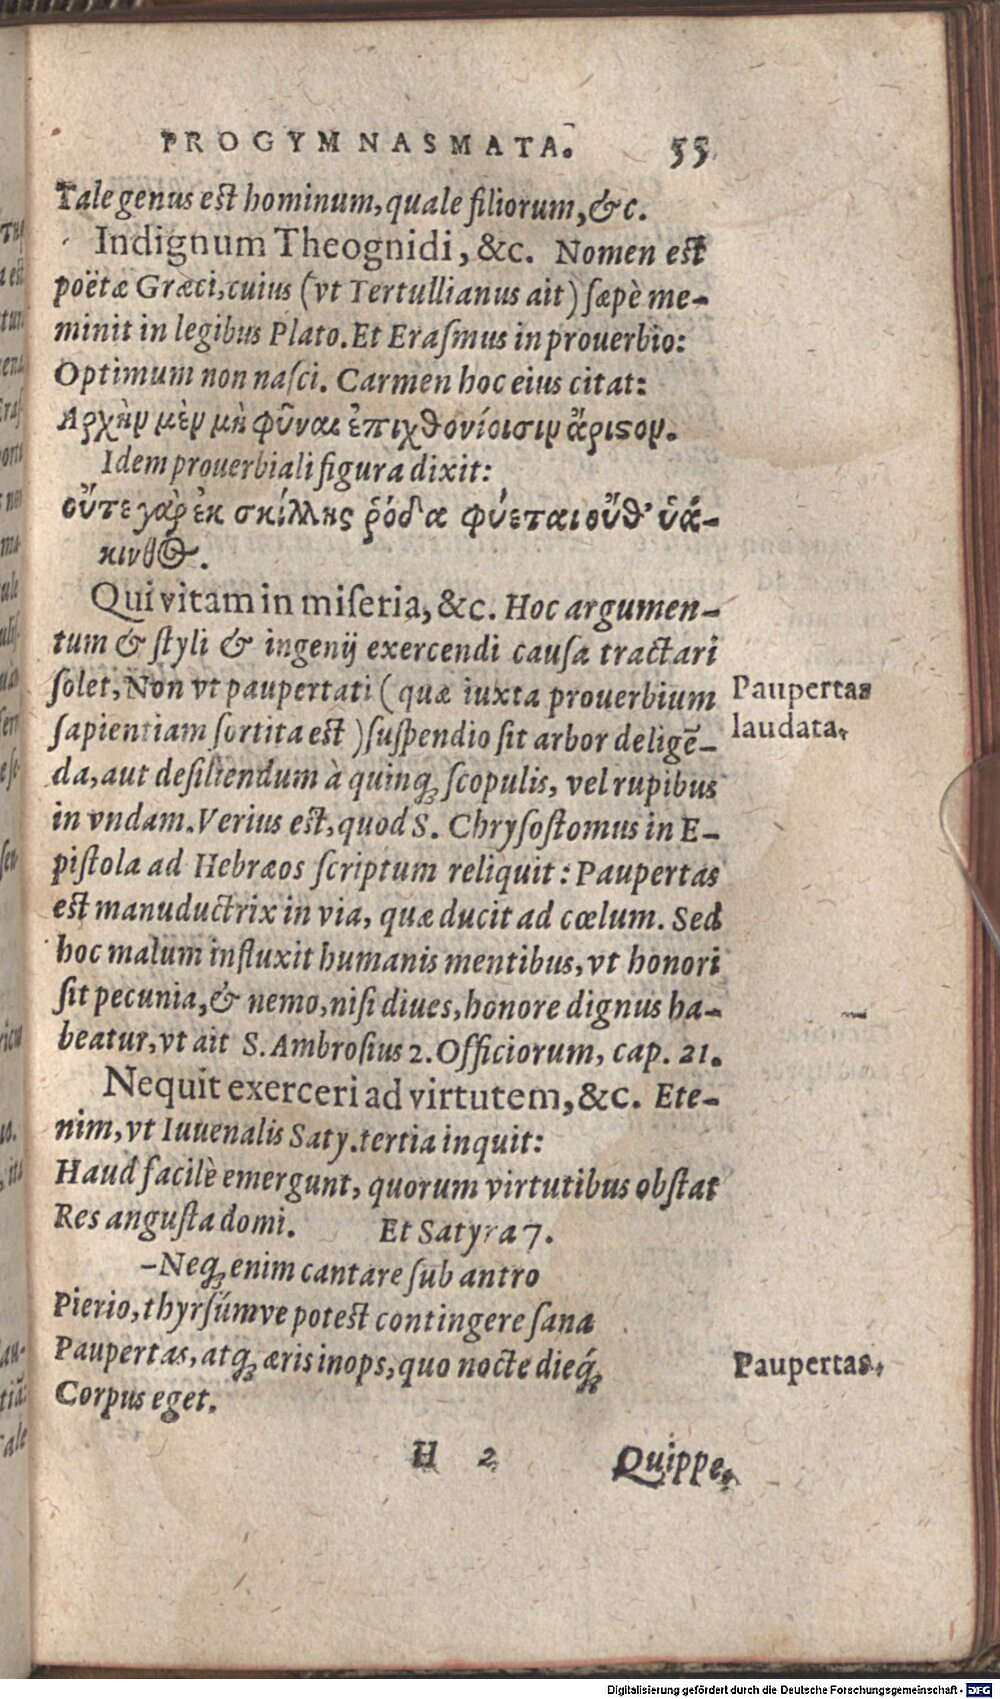 PROGYMNASMATA. 55
Tale genus est hominum, quale filiorum, &c.
Indignum Theognidi, &c. Nomen est
poëtæ Græci, cuius (vt Tertullianus ait) sæpè me-
minit in legibus Plato. Et Erasmus in prouerbio:
Optimum non nasci. Carmen hoc eius citat:
Αρχὴν μὲν μὴ φῦναι ἐπιχθονίοισιν ἄριςον.
Idem prouerbiali figura dixit:
οὔτε γὰρ ἐκ σκίλλης ῥόδα φύεται οὔθ' ὑά-
κινθος.
Qui vitam in miseria, &c. Hoc argumen-
tum & styli & ingenij exercendi causa tractari
solet, Non vt paupertati (quæ iuxta prouerbium
sapientiam sortita est) suspendio sit arbor deligē-
da, aut desiliendum à quinq; scopulis, vel rupibus
in vndam. Verius est, quod S. Chrysostomus in E-
pistola ad Hebræos scriptum reliquit: Paupertas
est manuductrix in via, quæ ducit ad cœlum. Sed
hoc malum influxit humanis mentibus, vt honori
sit pecunia, & nemo, nisi diues, honore dignus ha-
beatur, vt ait S. Ambrosius 2. Officiorum, cap. 21.
Nequit exerceri ad virtutem, &c. Ete-
nim, vt Iuuenalis Saty. tertia inquit:
Haud facilè emergunt, quorum virtutibus obstat
Res angusta domi. Et Satyra 7.
–Neq; enim cantare sub antro
Pierio, thyrsúmve potest contingere sana
Paupertas, atq; æris inops, quo nocte dieq́;
Corpus eget.
H 2 Quippe,
Paupertas
laudata,
Paupertas,
Digitalisierung gefördert durch die Deutsche Forschungsgemeinschaft - DFG